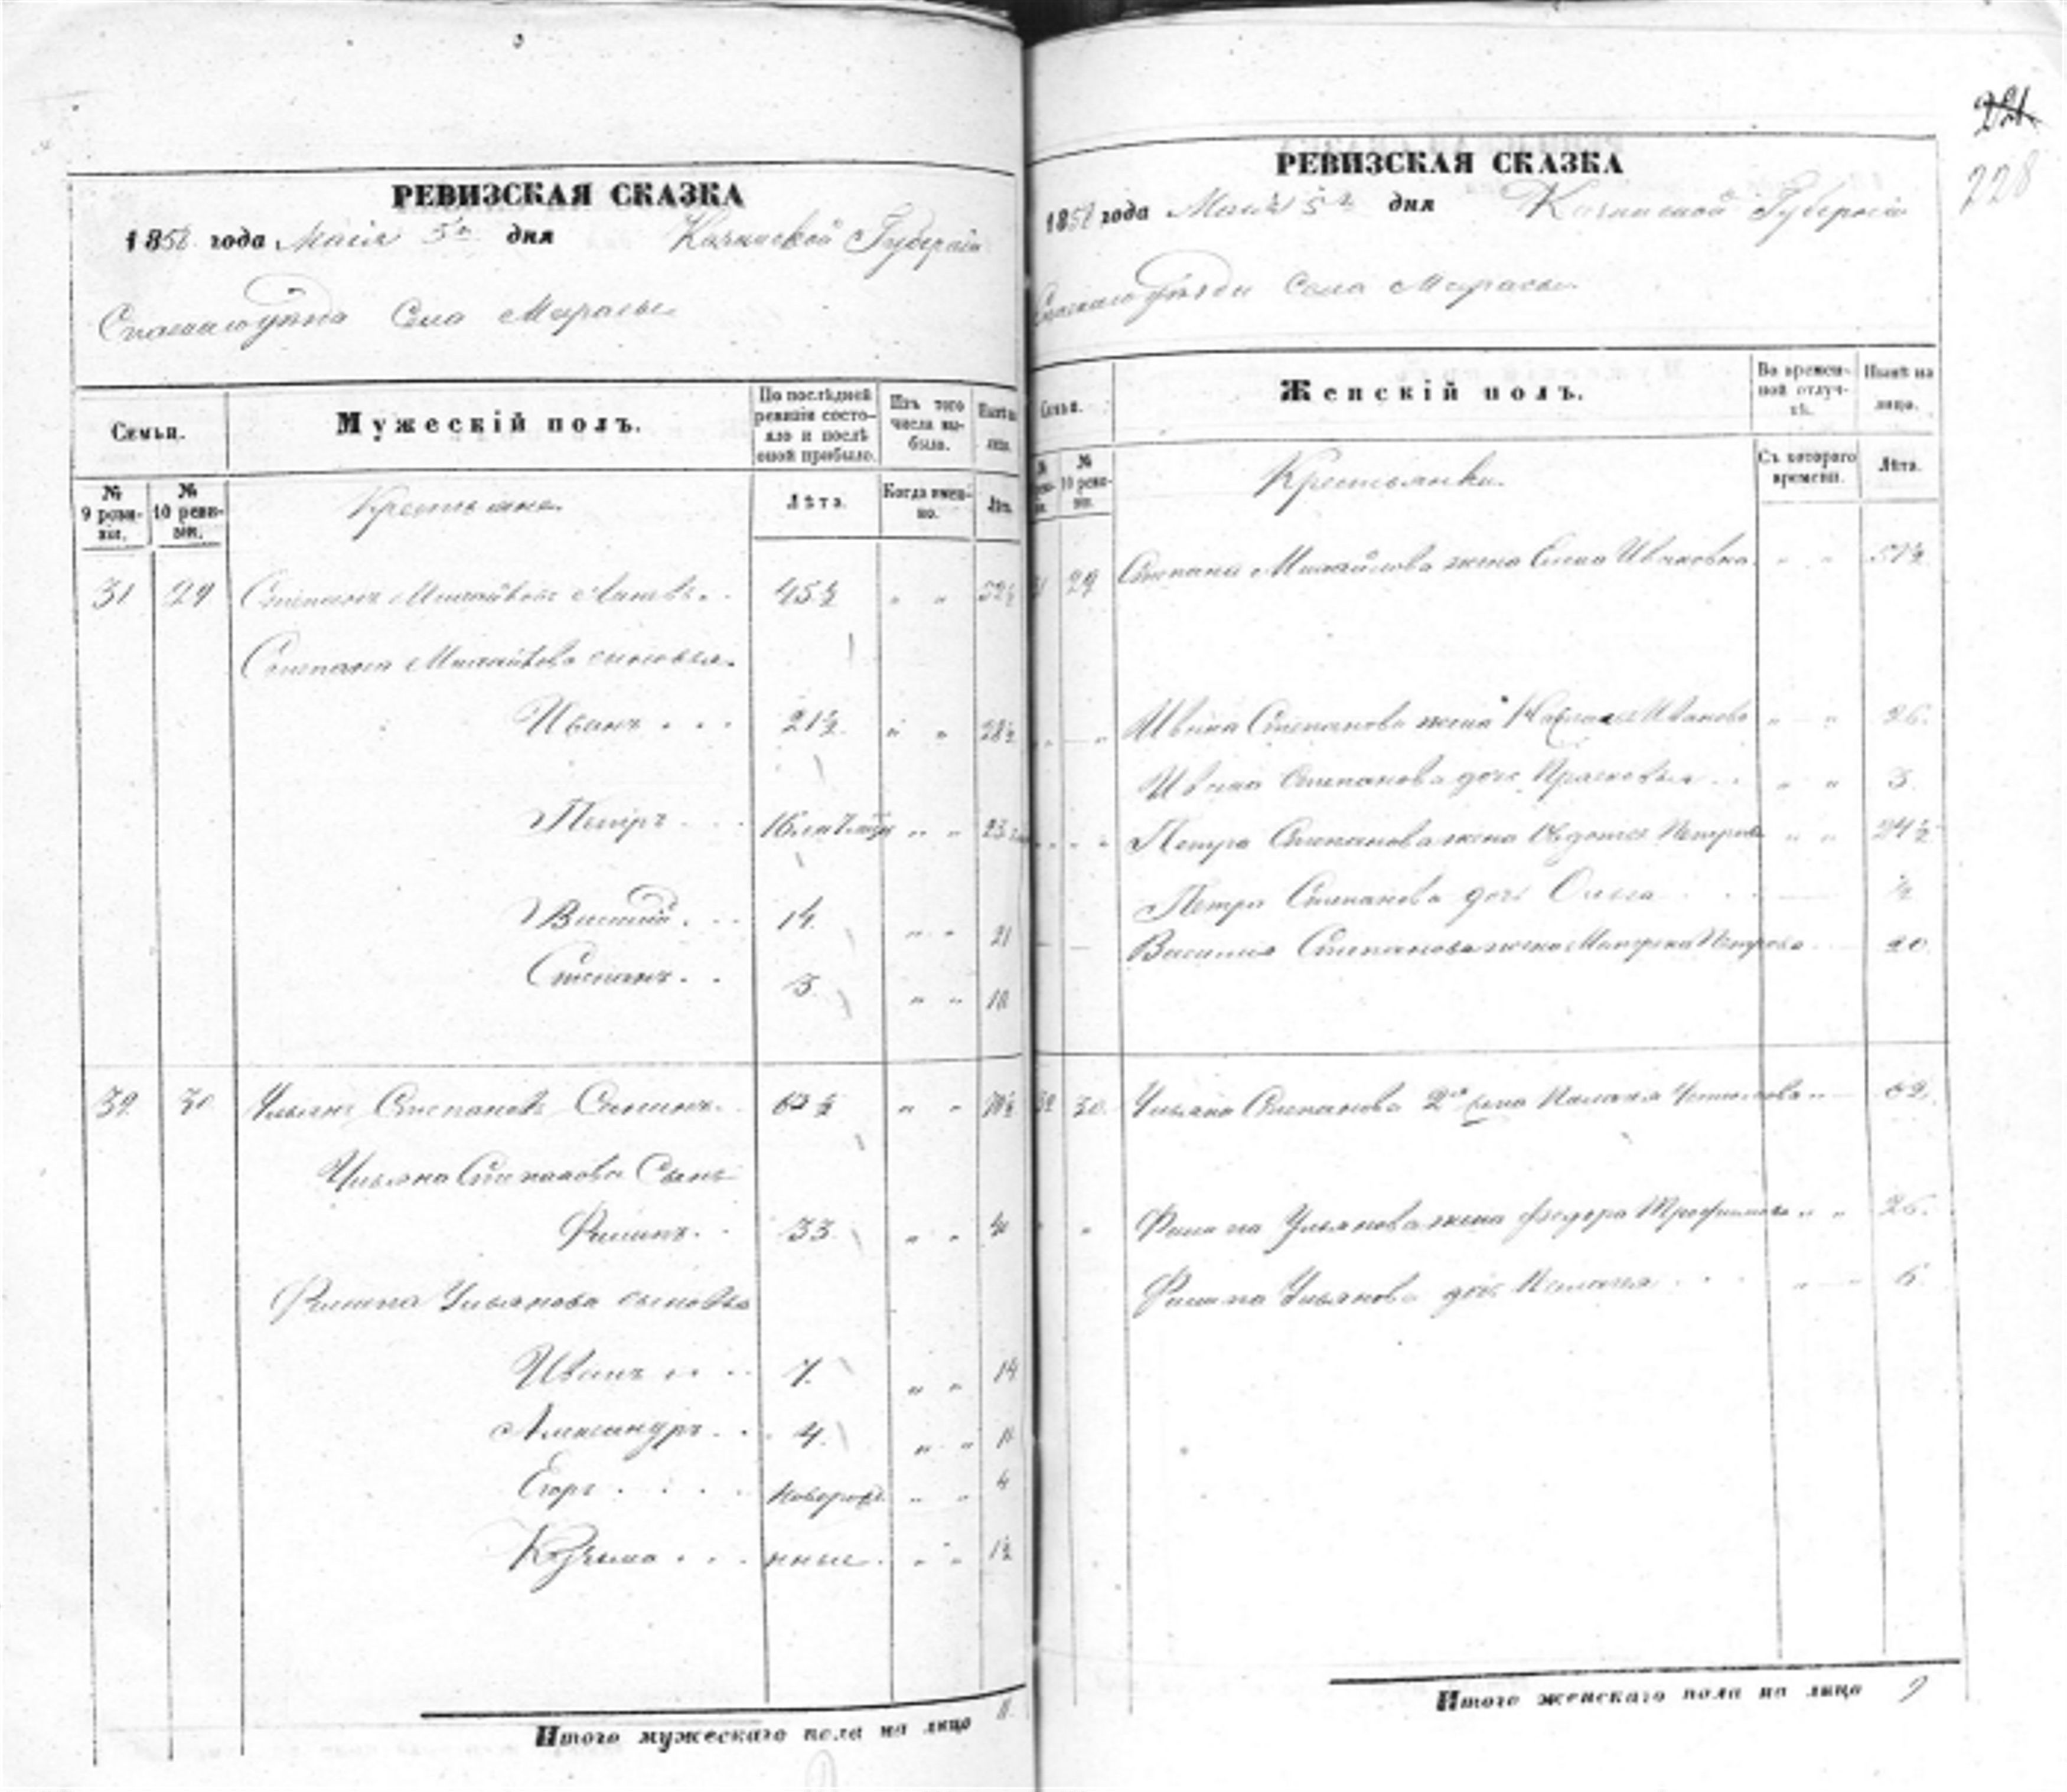 РЕВИЗСКАЯ СКАЗКА
1858 года Маія 5го дня Казанской Губерніи
Спаскаго уѣзда Села Мурасы
Семьи.
Мужескій полъ.
По послѣдней ревизіи состояло и послѣ оной прибыло.
Изъ того числа выбыло.
Нынѣ на лицо.
№ 9 ревизіи.
№ 10 ревизіи.
Крестьяне
Лѣта.
Когда именно.
Лѣта.
31 29 Степанъ Михайловъ 45½ " " 52½
Степана Михайлова сыновья.
Иванъ . . . 21½ " " 28½
Петръ . . . 16 " " 23
Василій . . . 14 " " 21
Степанъ . . 3 " " 10
32 30 Ульянъ Степановъ 63½ " " 70½
Ульяна Степанова Сынъ
Филипъ . . 33 " " 40
Филипа Ульянова сыновья
Иванъ . . . 7. " " 14
Александръ . . 4. " " 11
Егоръ . . . . новорож " " 4
Козьма . . . нные . " " 1½
Итого мужескаго пола на лицо 11.
221
228
РЕВИЗСКАЯ СКАЗКА
1858 года Маія 5го дня Казанской Губерніи
Спаскаго уѣзда Села Мурасы
Семьи.
Женскій полъ.
Во временной отлучкѣ.
Нынѣ на лицо.
№ 10 ревизіи.
Крестьянки.
Съ котораго времени.
Лѣта.
31 29 Степана Михайлова жена Елена Ивановна " " 51½
Ивана Степанова жена Иванова " " 26.
Ивана Степанова дочь Прасковья . . " " 3.
Петра Степанова жена Авдотья Петрова " " 24½
Петра Степанова дочь Ольга . . . ½
Василія Степанова жена Матрена Петрова 20.
32 30. Ульяна Степанова 2я жена Пелагея " 62.
Филипа Ульянова жена Федора Трофимова " " 36.
Филипа Ульянова дочь Пелагея . . . " " 6.
Итого женскаго пола на лицо 9